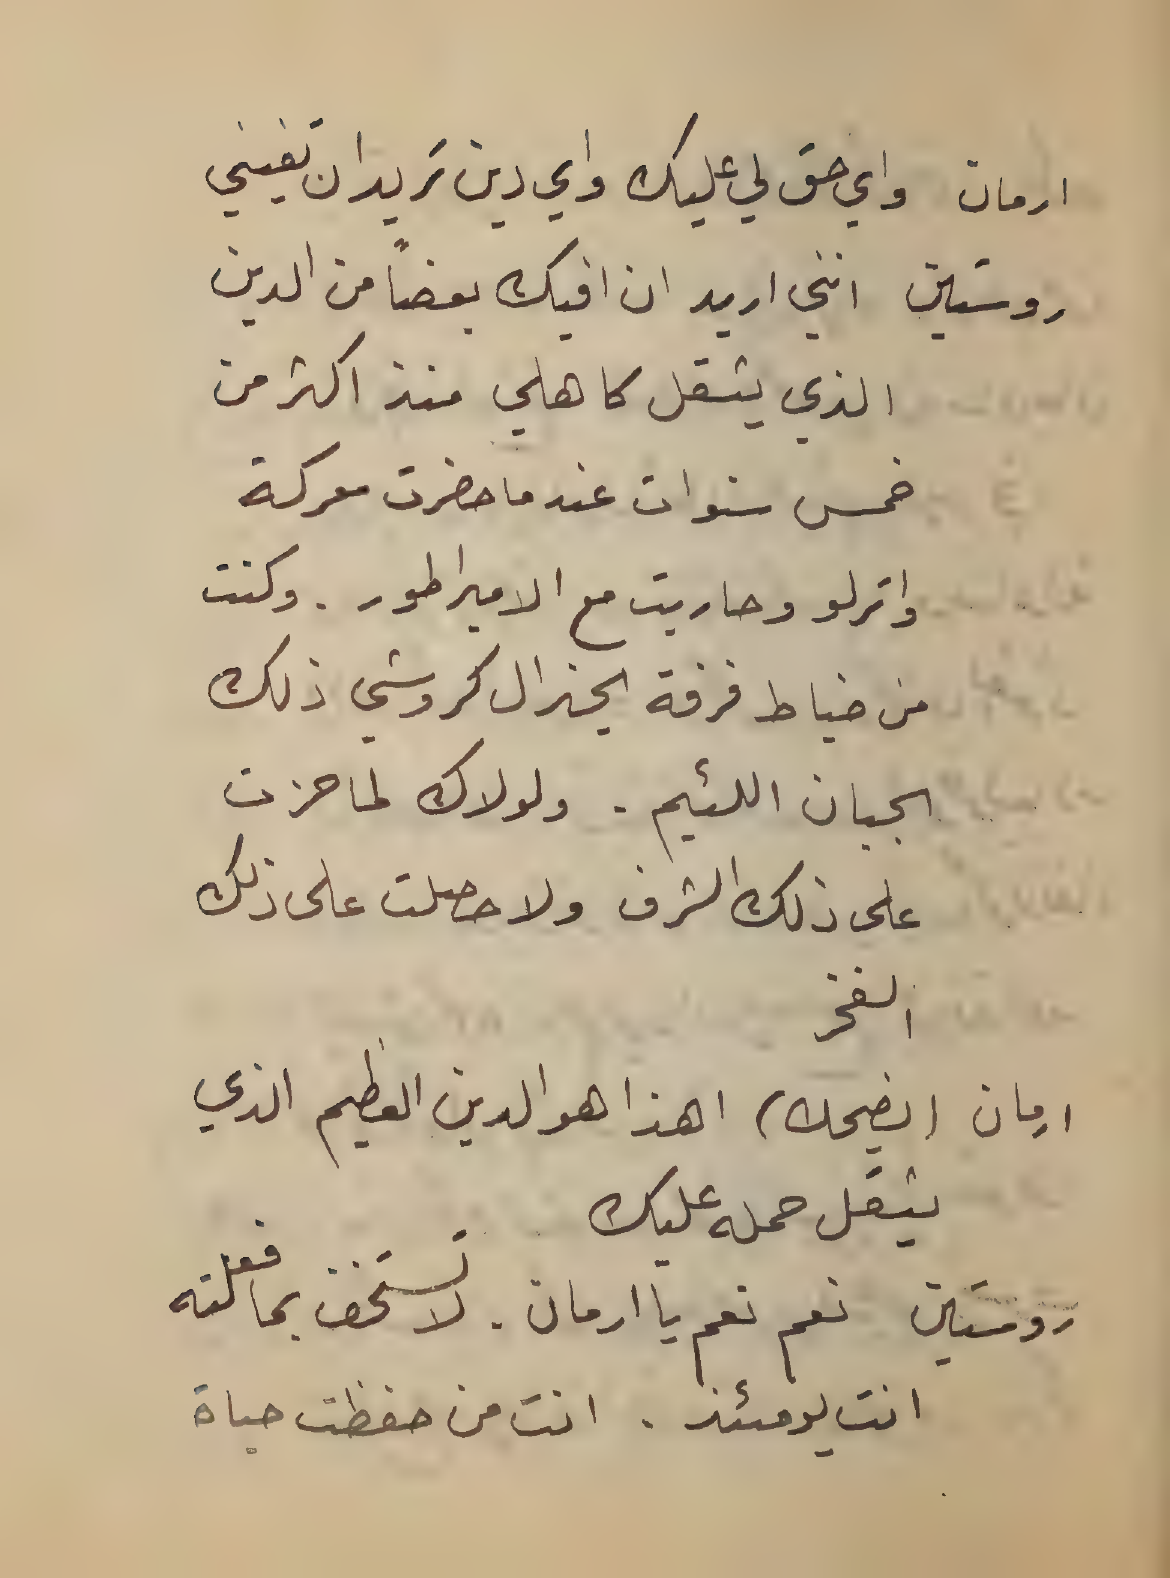 ارمان واي حق لي عليك واي دين تريد ان تفيني
روستين انني اريد ان افيك بعضاً من الدين
الذي يثقل كاهلي منذ اكثر من
خمس سنوات عندما حضرت معركة
واترلو وحاربت مع الامبراطور . وكنت
من ضباط فرقة الجنرال كروشي ذلك
الجبان اللئيم . ولولاك لما حزت
على ذلك الشرف ولا حصلت على ذلك
الفخر
ارمان (يضحك) اهذا هو الدين العظيم الذي
يثقل حمله عليك
روستين نعم نعم يا ارمان . لا تستخف بما فعلته
انت يومئذ . انت من حفظت حياة